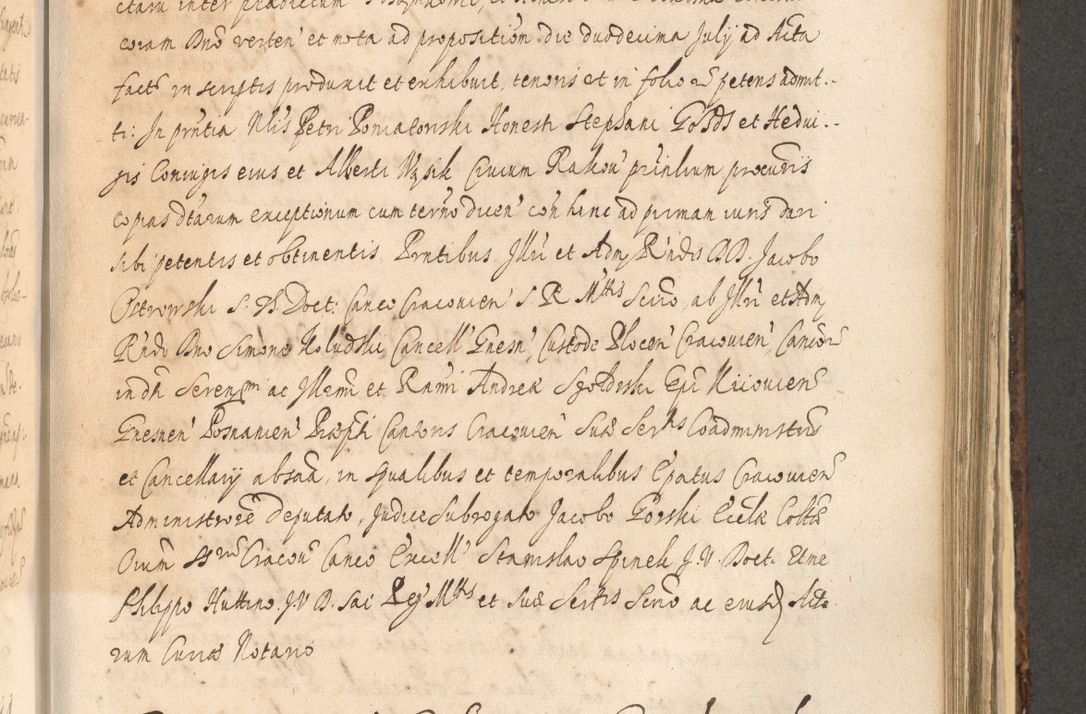 coram Dno verten' et nota ad proposition die duodecima Julij ad Acta
fact in scriptis produxit et exhibuit, tenoris ut in folio petens admit-
ti: In pntia Nlis Petri Poniatowski Honesti Stephani et Hedvi-
gis Coniugis eius et Alberti Wąsik Civium procuris
copias dtarum exceptionum cum termo dicen' con hinc ad primam iuris dari
sibi petentis et obtinentis Pntibus Illri et Adm Rndis DD. Jacobo
Ostrowski S. Th Doct: Canco Cracovien' S. R Mttis Scrio, ab Illri et Adm
Rndo Dno Simone Holudski Cancell' Gnesn', Custode Plocen' Cracovien', Canco
indti Serenmi ac Illrmi et Rmi Andreæ Epi Kiiovien
Gnesnen' Posnanien' Præpti Cantoris Cracovien' Suæ Sertis Coadministris
et Cancellarij absa, in spualibus et temporalibus Epatus Cracovien
Administrore deputato, Judice Subrogato Jacobo Gorski Eccle Collte
Oium Sstorum Cracov Canco Excell' Stanislao Spinek J.V. Doct. Etme
Philippo Huttino J.V D. Sac Reg Mttis et Suæ Sertis Scrio ac eiusd Acto
rum Curiæ Notario